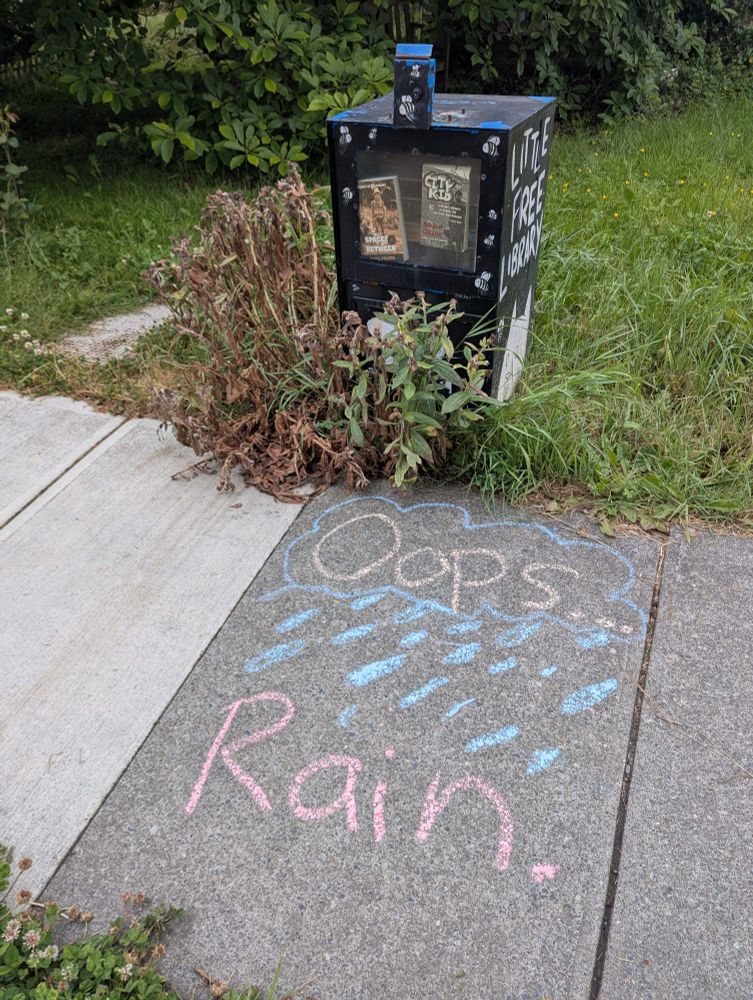 LITTLE
FREE
LIBRARY
SPACES
BETWEEN
CITY
KID
Oops...
Rain.